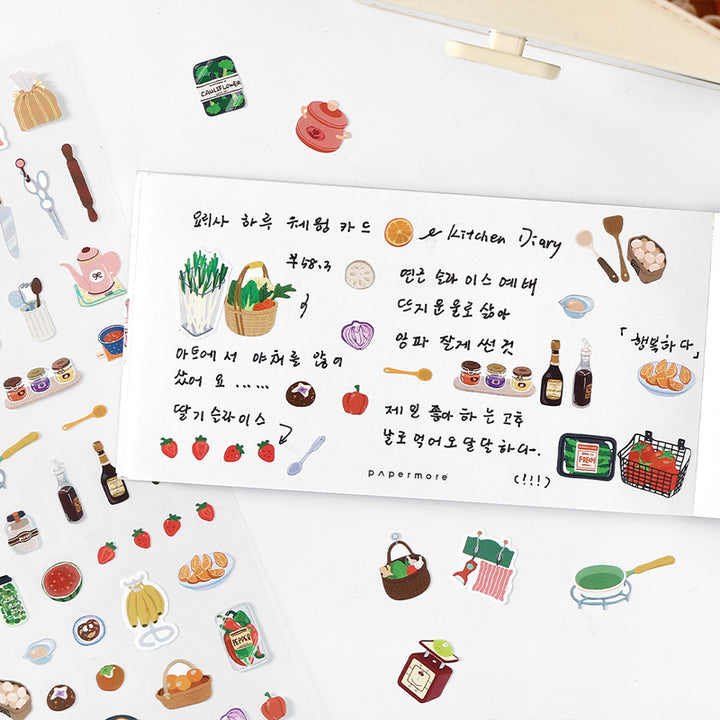 CAULIFLOWER
요리사 하루 웨웡 카드 & Kitchen Diary
부58.3
연근 슬라이스예배
뜨지운물로삶아
양파 잘게썬것
「행복하다」
마트에서 야채를 많이
샀어요......
딸기슬라이스
제일좋아하는고추
날로먹어오달달하다.
(!!!)
FRESH
papermore
PEPPER